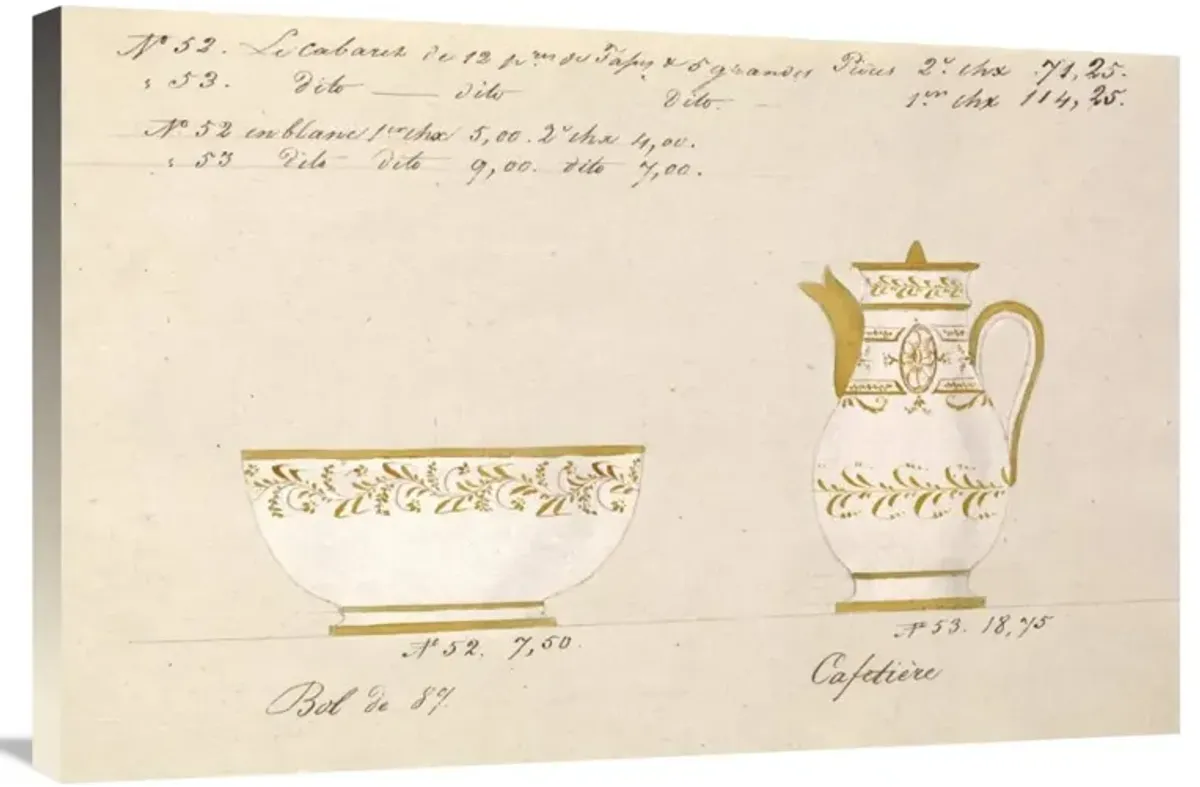 Nº 52. Le cabaret de 12 pres de Tasses & 5 grandes Pièces 2e chx 71,25.
" 53. Dito — dito Dito. — 1er chx 114,25.
Nº 52 en blanc 1er chx 5,00. 2e chx 4,00.
" 53 Dito dito 9,00. dito 7,00.
Nº 52. 7,50.
Bol de 87.
Nº 53. 18,75
Cafetière